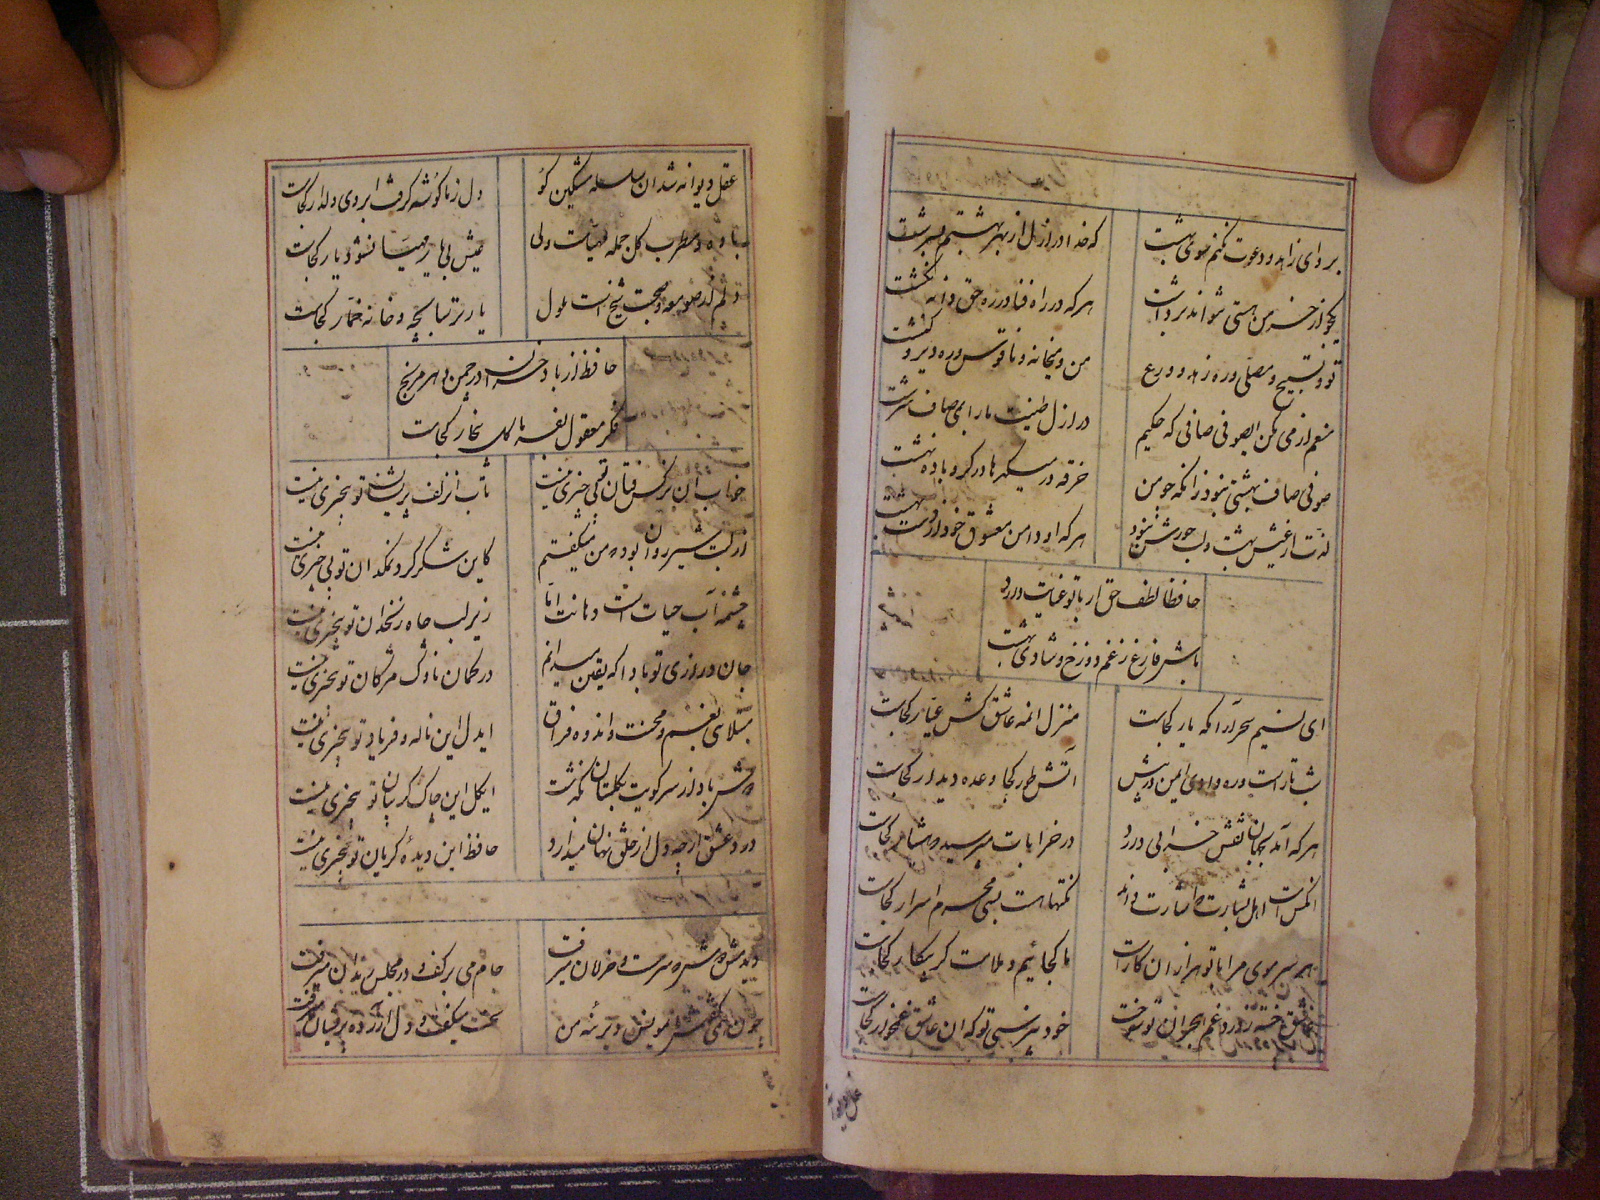 برو ای زاهد و دعوت مکنم سوی بهشت
که خدا در ازل از بهر بهشتم نسرشت
یکجو از خرمن هستی نتواند برداشت
هر که در راه فنا در ره حق دانه نکشت
تو و تسبیح و مصلی و ره زهد و ورع
من و میخانه و ناقوس و ره دیر و کنشت
منعم از می مکن ایصوفی صافی که حکیم
در ازل طینت ما را بمی صاف سرشت
صوفی صاف بهشتی نبود زانکه چو من
خرقه در میکدها در گرو باده نهشت
لذت از عیش بهشت و لب حورش نبود
هر که او دامن معشوق خود از دست بهشت
حافظا لطف حق ار با تو عنایت دارد
باش فارغ ز غم دوزخ و شادی بهشت
ای نسیم سحر آرامگه یار کجاست
منزل انمه عاشق کش عیار کجاست
شب تار است و ره وادی ایمن در پیش
آتش طور کجا وعده دیدار کجاست
هر که آمد بجهان نقش خرابی دارد
در خرابات مپرسید که هشیار کجاست
انکس است اهل بشارت که اشارت داند
نکتها هست بسی محرم اسرار کجاست
هر سر موی مرا با تو هزاران کار است
ما کجائیم و ملامت گر بیکار کجاست
عاشق خسته ز درد غم هجران تو سوخت
خود نپرسی تو که ان عاشق غمخوار کجاست
عقل دیوانه
عقل دیوانه شد ان سلسله مشکین کو
دل ز ما گوشه گرفت ابروی دلدار کجاست
باده و مطرب و گل جمله مهیاست ولی
عیش بی یار مهیا نشود یار کجاست
دلم از صومعه و صحبت شیخ است ملول
یار ترسا بچه و خانه خمار کجاست
حافظ از باد خزان در چمن دهر مرنج
فکر معقول بفرما گل بیخار کجاست
خواب ان نرگس فتان تو بی چیزی نیست
تاب ان زلف پریشان تو بیچیزی نیست
از لبت شیر روان بود که من میگفتم
کاین شکر گرد نمکدان تو بی چیزی نیست
چشمه آب حیات است دهانت اما
زیر لب چاه زنخدان تو بیچیزی نیست
جان درازی تو بادا که یقین میدانم
در کمان ناوک مژگان تو بیچیزی نیست
مبتلائی بغم و محنت و اندوه فراق
ایدل این ناله و فریاد تو بیچیزی نیست
دوش باد از سر کویت بگلستان بگذشت
ایگل این چاک گریبان تو بیچیزی نیست
درد عشق ار چه دل از خلق نهان میدارد
حافظ این دیده گریان تو بیچیزی نیست
دیدمش دوش که سرمست و خرامان میرفت
جام می بر کف و در مجلس رندان میرفت
چون همی گفتمش از مونس دیرینه من
سخت میگفت و دل ازرده